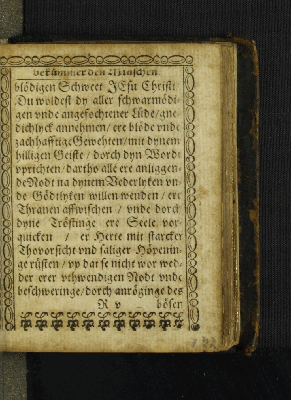 bekümmerden Minschen
blödigen Schweet JEsu Christi
Du woldest dy aller schwarmödi-
gen vnde angefochtener Lüde/gne-
dichlyck annehmen/ere blöde vnde
zachhafftige Gewehten/mit dynem
hilligen Geiste/dorch dyn Wordt
vprichten/dartho alle ere anliggen-
de Nodt na dynem Vederlyken vn-
de Gödtlyken willen wenden/ere
Thranen affwischen/vnde dorch
dyne Tröstinge ere Seele vor-
quicken/er Herte mit starcker
Thovorsicht vnd saliger Höpenin-
ge rüsten/vp dat se nicht wor wed-
der erer vthwendigen Nodt vnde
beschweringe/dorch anröginge des
R v böser